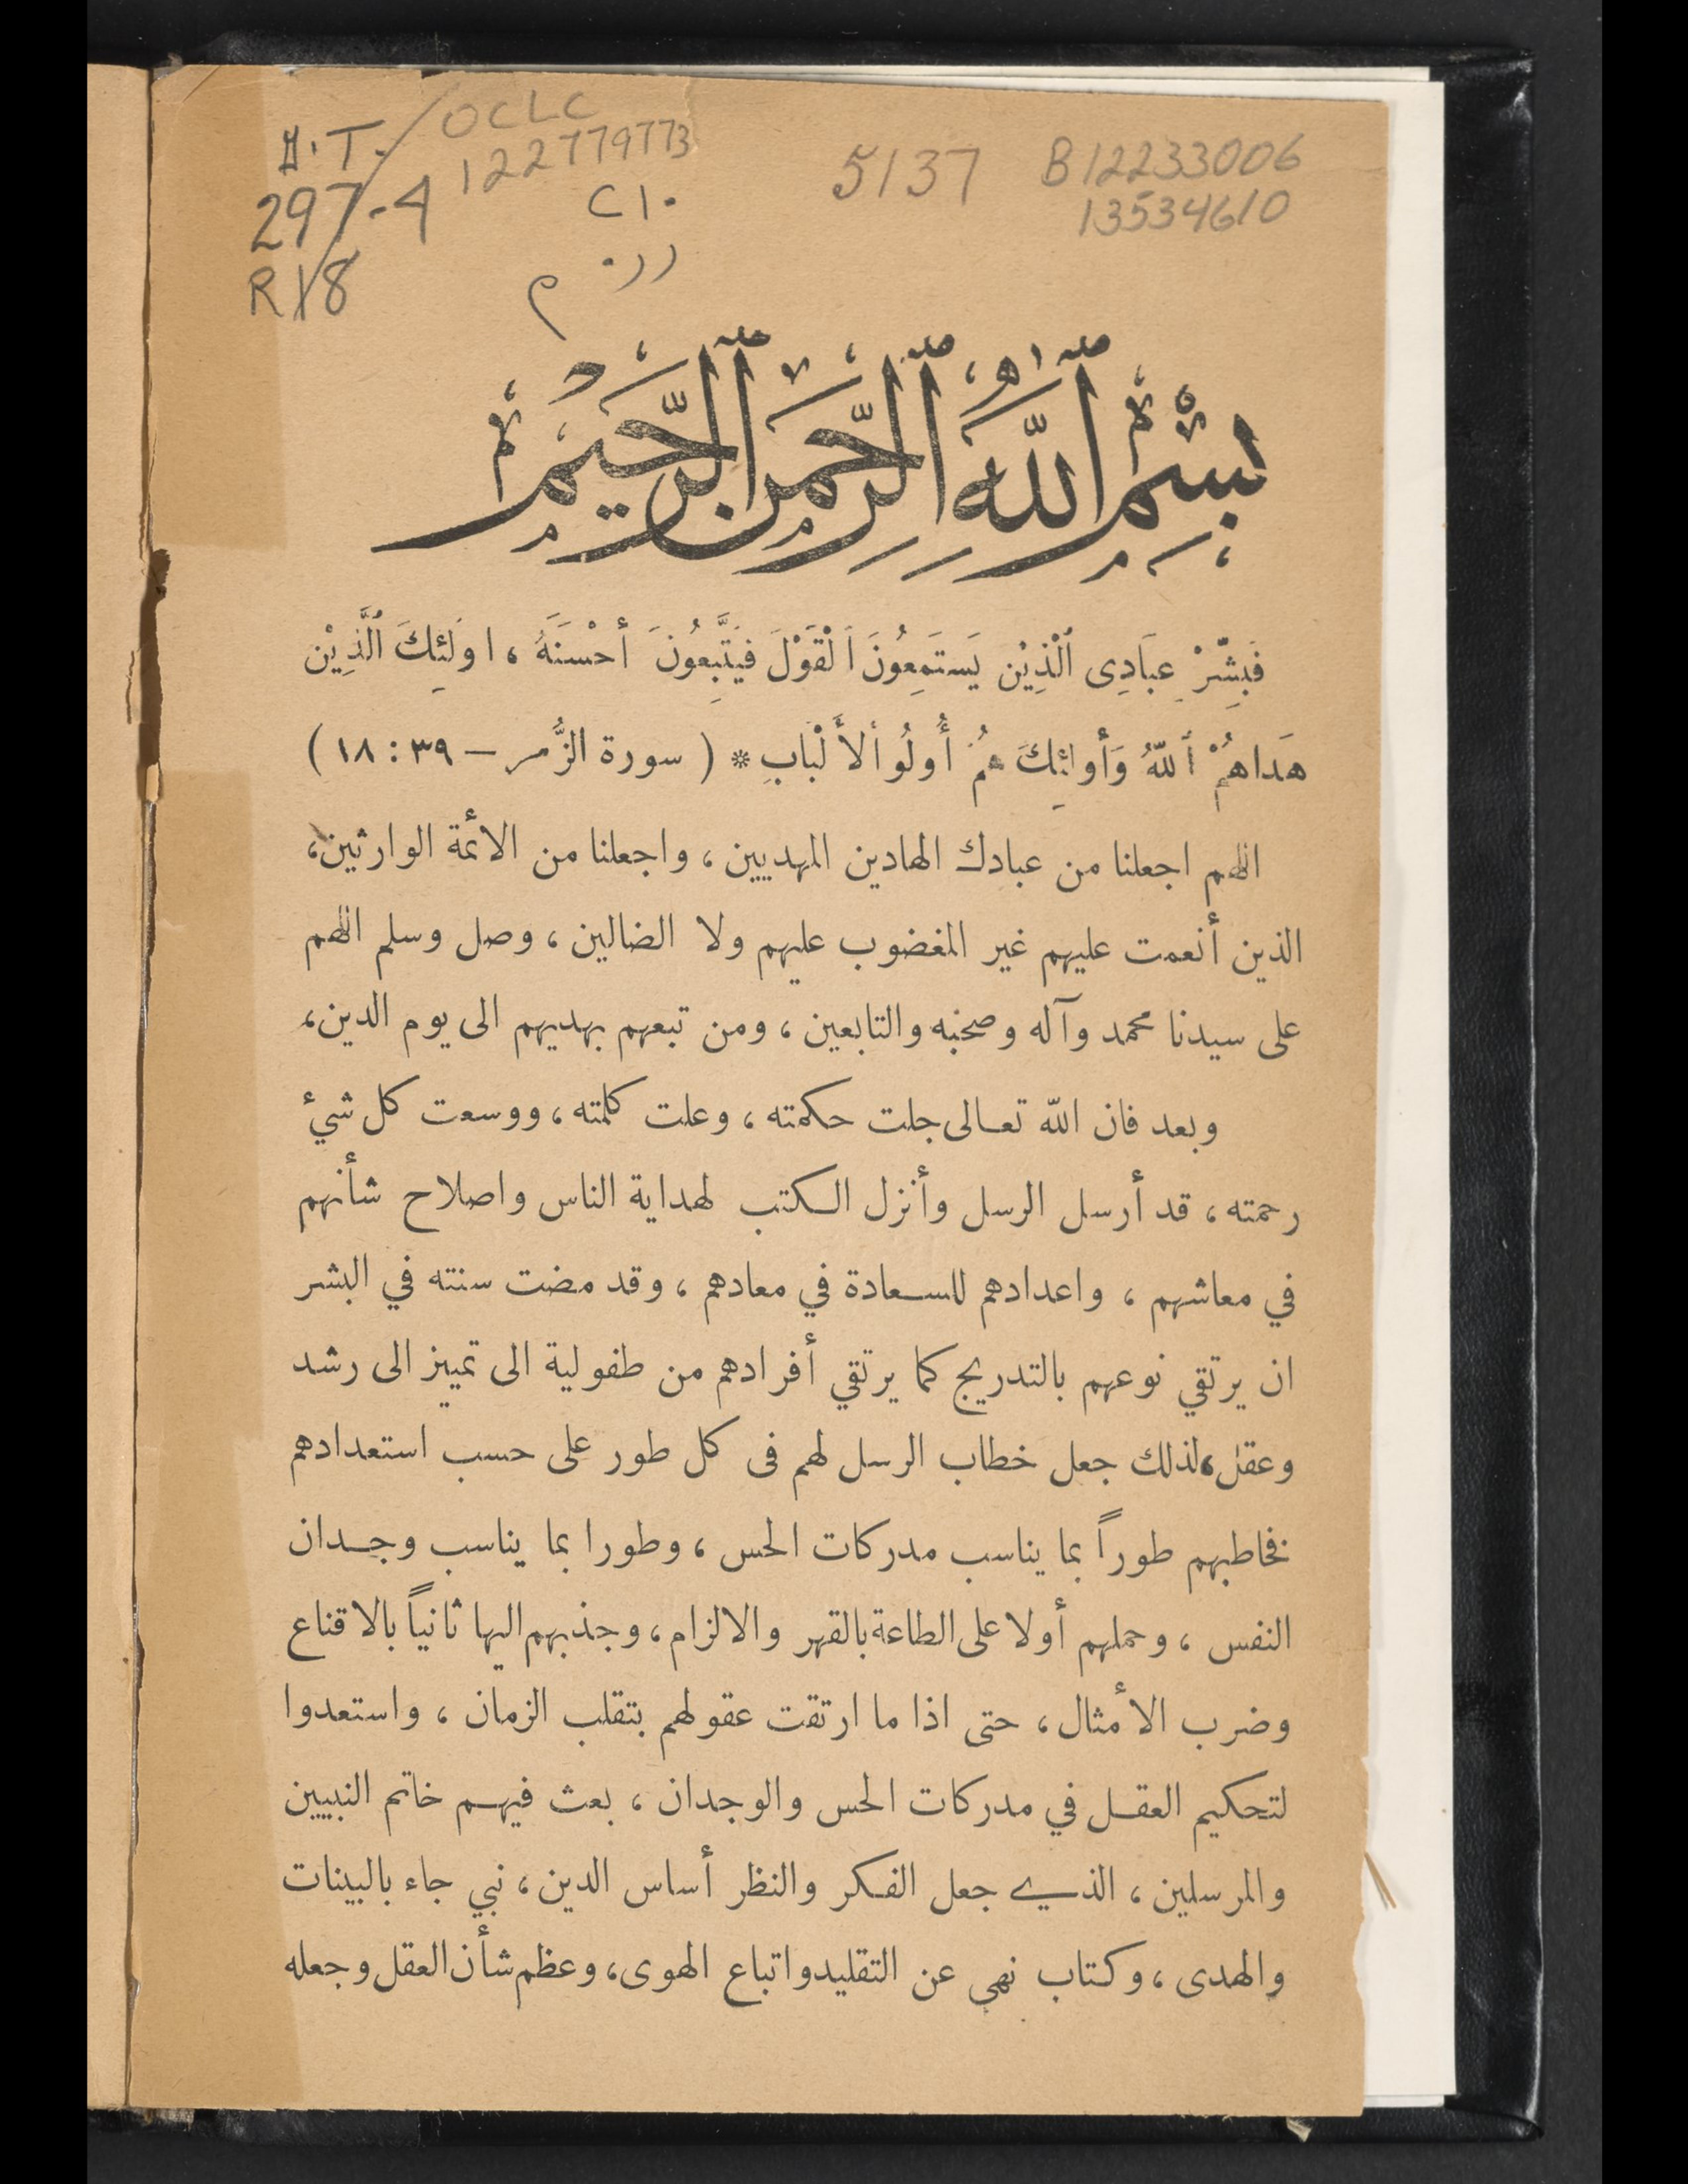 OCLC
122779773
5137
B12233006
13534610
297.4
R18
بِسْمِ ٱللَّهِ ٱلرَّحْمَٰنِ ٱلرَّحِيمِ
فَبَشِّرْ عِبَادِى ٱلَّذِيْن يَسْتَمِعُونَ اَلْقَوْلَ فَيَتَّبِعُونَ أَحْسَنَهُ ، اولَئِكَ ٱلَّذِيْن
هَدَاهُمْ ٱللّهُ وَأُولئِكَ هُمْ أُولُو ألأَلْبابِ * ( سورة الزُّمر – ٣٩ : ١٨ )
اللهم اجعلنا من عبادك الهادين المهديين ، واجعلنا من الائمة الوارثين ،
الذين أنعمت عليهم غير المغضوب عليهم ولا الضالين ، وصل وسلم اللهم
على سيدنا محمد وآله وصحبه والتابعين ، ومن تبعهم بهديهم الى يوم الدين ،
وبعد فان الله تعالى جلت حكمته ، وعلت كلمته ، ووسعت كل شيء
رحمته ، قد أرسل الرسل وأنزل الكتب لهداية الناس واصلاح شأنهم
في معاشهم ، واعدادهم للسعادة في معادهم ، وقد مضت سنته في البشر
ان يرتقي نوعهم بالتدريج كما يرتقي أفرادهم من طفولية الى تمييز الى رشد
وعقل ، لذلك جعل خطاب الرسل لهم فى كل طور على حسب استعدادهم
فخاطبهم طوراً بما يناسب مدركات الحس ، وطورا بما يناسب وجدان
النفس ، وحملهم أولا على الطاعة بالقهر والالزام ، وجذبهم اليها ثانياً بالاقناع
وضرب الأمثال ، حتى اذا ما ارتقت عقولهم بتقلب الزمان ، واستعدوا
لتحكيم العقل في مدركات الحس والوجدان ، بعث فيهم خاتم النبيين
والمرسلين ، الذي جعل الفكر والنظر أساس الدين ، نبي جاء بالبينات
والهدى ، وكتاب نهى عن التقليد واتباع الهوى ، وعظم شأن العقل وجعله